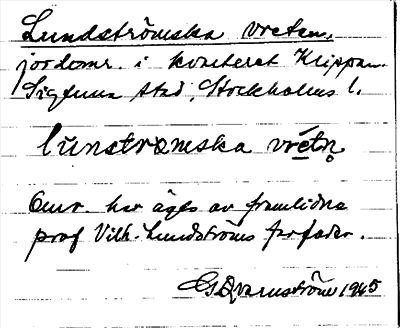 Lundströmska vreten,
jordomr. i kvarteret Klippan
Sigtuna stad, Stockholms l.
lùnstrømska vrétn̥
Omr. har ägts av framlidne
prof Vilh. Lundströms farfader.
G Qvarnström 1945